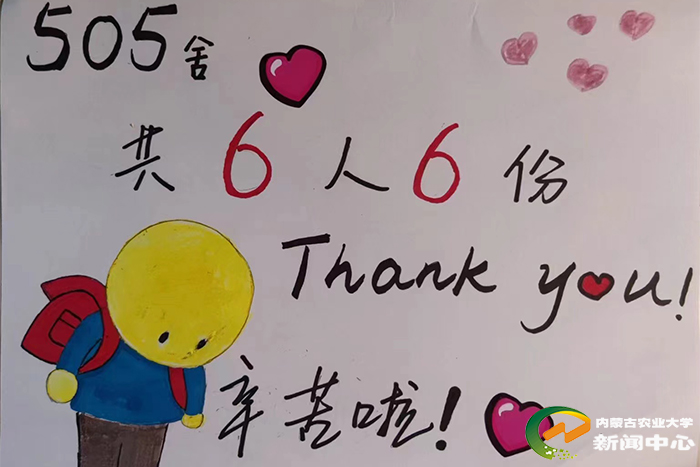 505舍
共6人6份
Thank you!
辛苦啦!
内蒙古农业大学
新闻中心